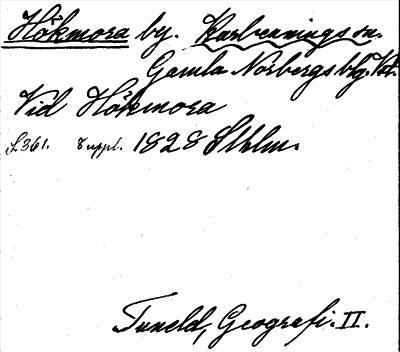 Hökmora by. Karbennings sn.
Gamla Norbergs blg. Vstm.
Vid Hökmora
S. 361. Suppl. 1828 Sthlm.
Tuneld, Geografi. II.